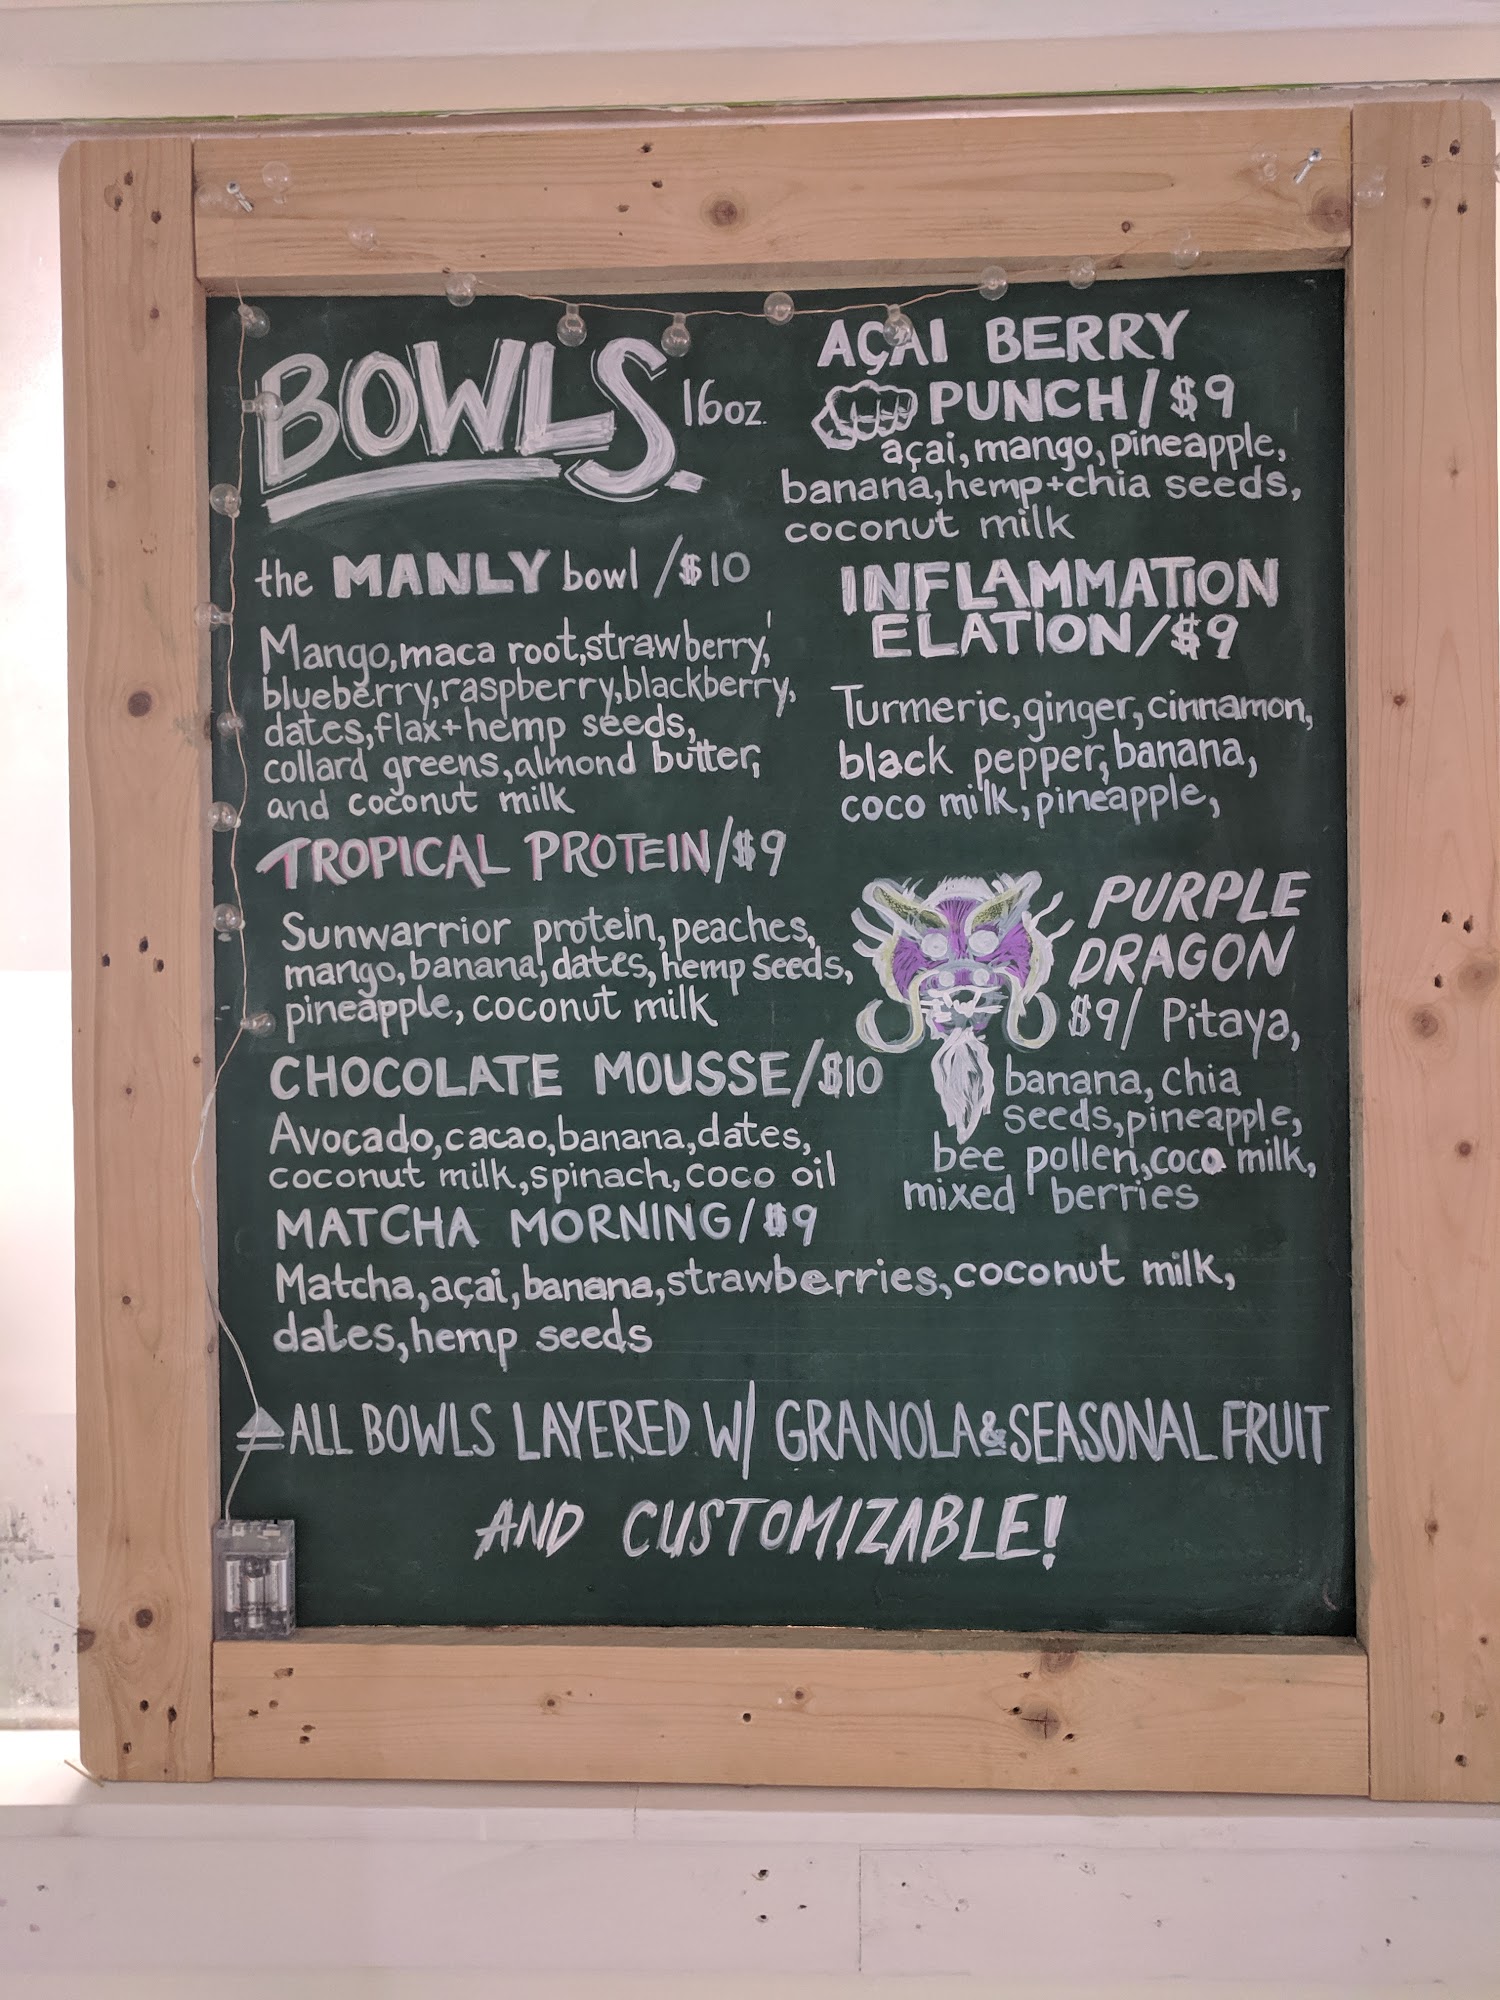 BOWLS. 16oz.
the MANLY bowl /$10
Mango, maca root, strawberry,
blueberry, raspberry, blackberry,
dates, flax+hemp seeds,
collard greens, almond butter,
and coconut milk
TROPICAL PROTEIN/$9
Sunwarrior protein, peaches,
mango, banana, dates, hemp seeds,
pineapple, coconut milk
CHOCOLATE MOUSSE/$10
Avocado, cacao, banana, dates,
coconut milk, spinach, coco oil
MATCHA MORNING/$9
Matcha, açai, banana, strawberries, coconut milk,
dates, hemp seeds
AÇAI BERRY
PUNCH/$9
açai, mango, pineapple,
banana, hemp+chia seeds,
coconut milk
INFLAMMATION
ELATION/$9
Turmeric, ginger, cinnamon,
black pepper, banana,
coco milk, pineapple,
PURPLE
DRAGON
$9/ Pitaya,
banana, chia
seeds, pineapple,
bee pollen, coco milk,
mixed berries
ALL BOWLS LAYERED W/ GRANOLA & SEASONAL FRUIT
AND CUSTOMIZABLE!